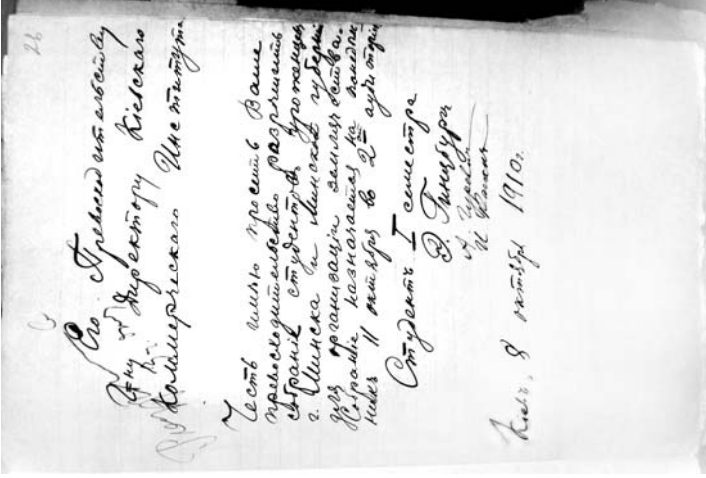 26
Его Превосходительству
Директору Кіевскаго
Коммерческаго Института
Честь имѣю просить Ваше
превосходительство разрѣшить
собраніе студентовъ уроженцевъ
г. Минска и Минской губерніи
для организаціи землячества.
Собраніе назначается на понедѣль
никъ 11 октября въ 2ой аудиторіи
Студентъ I семестра
Э. Гинцбургъ
Кіевъ, 8 октября 1910г.